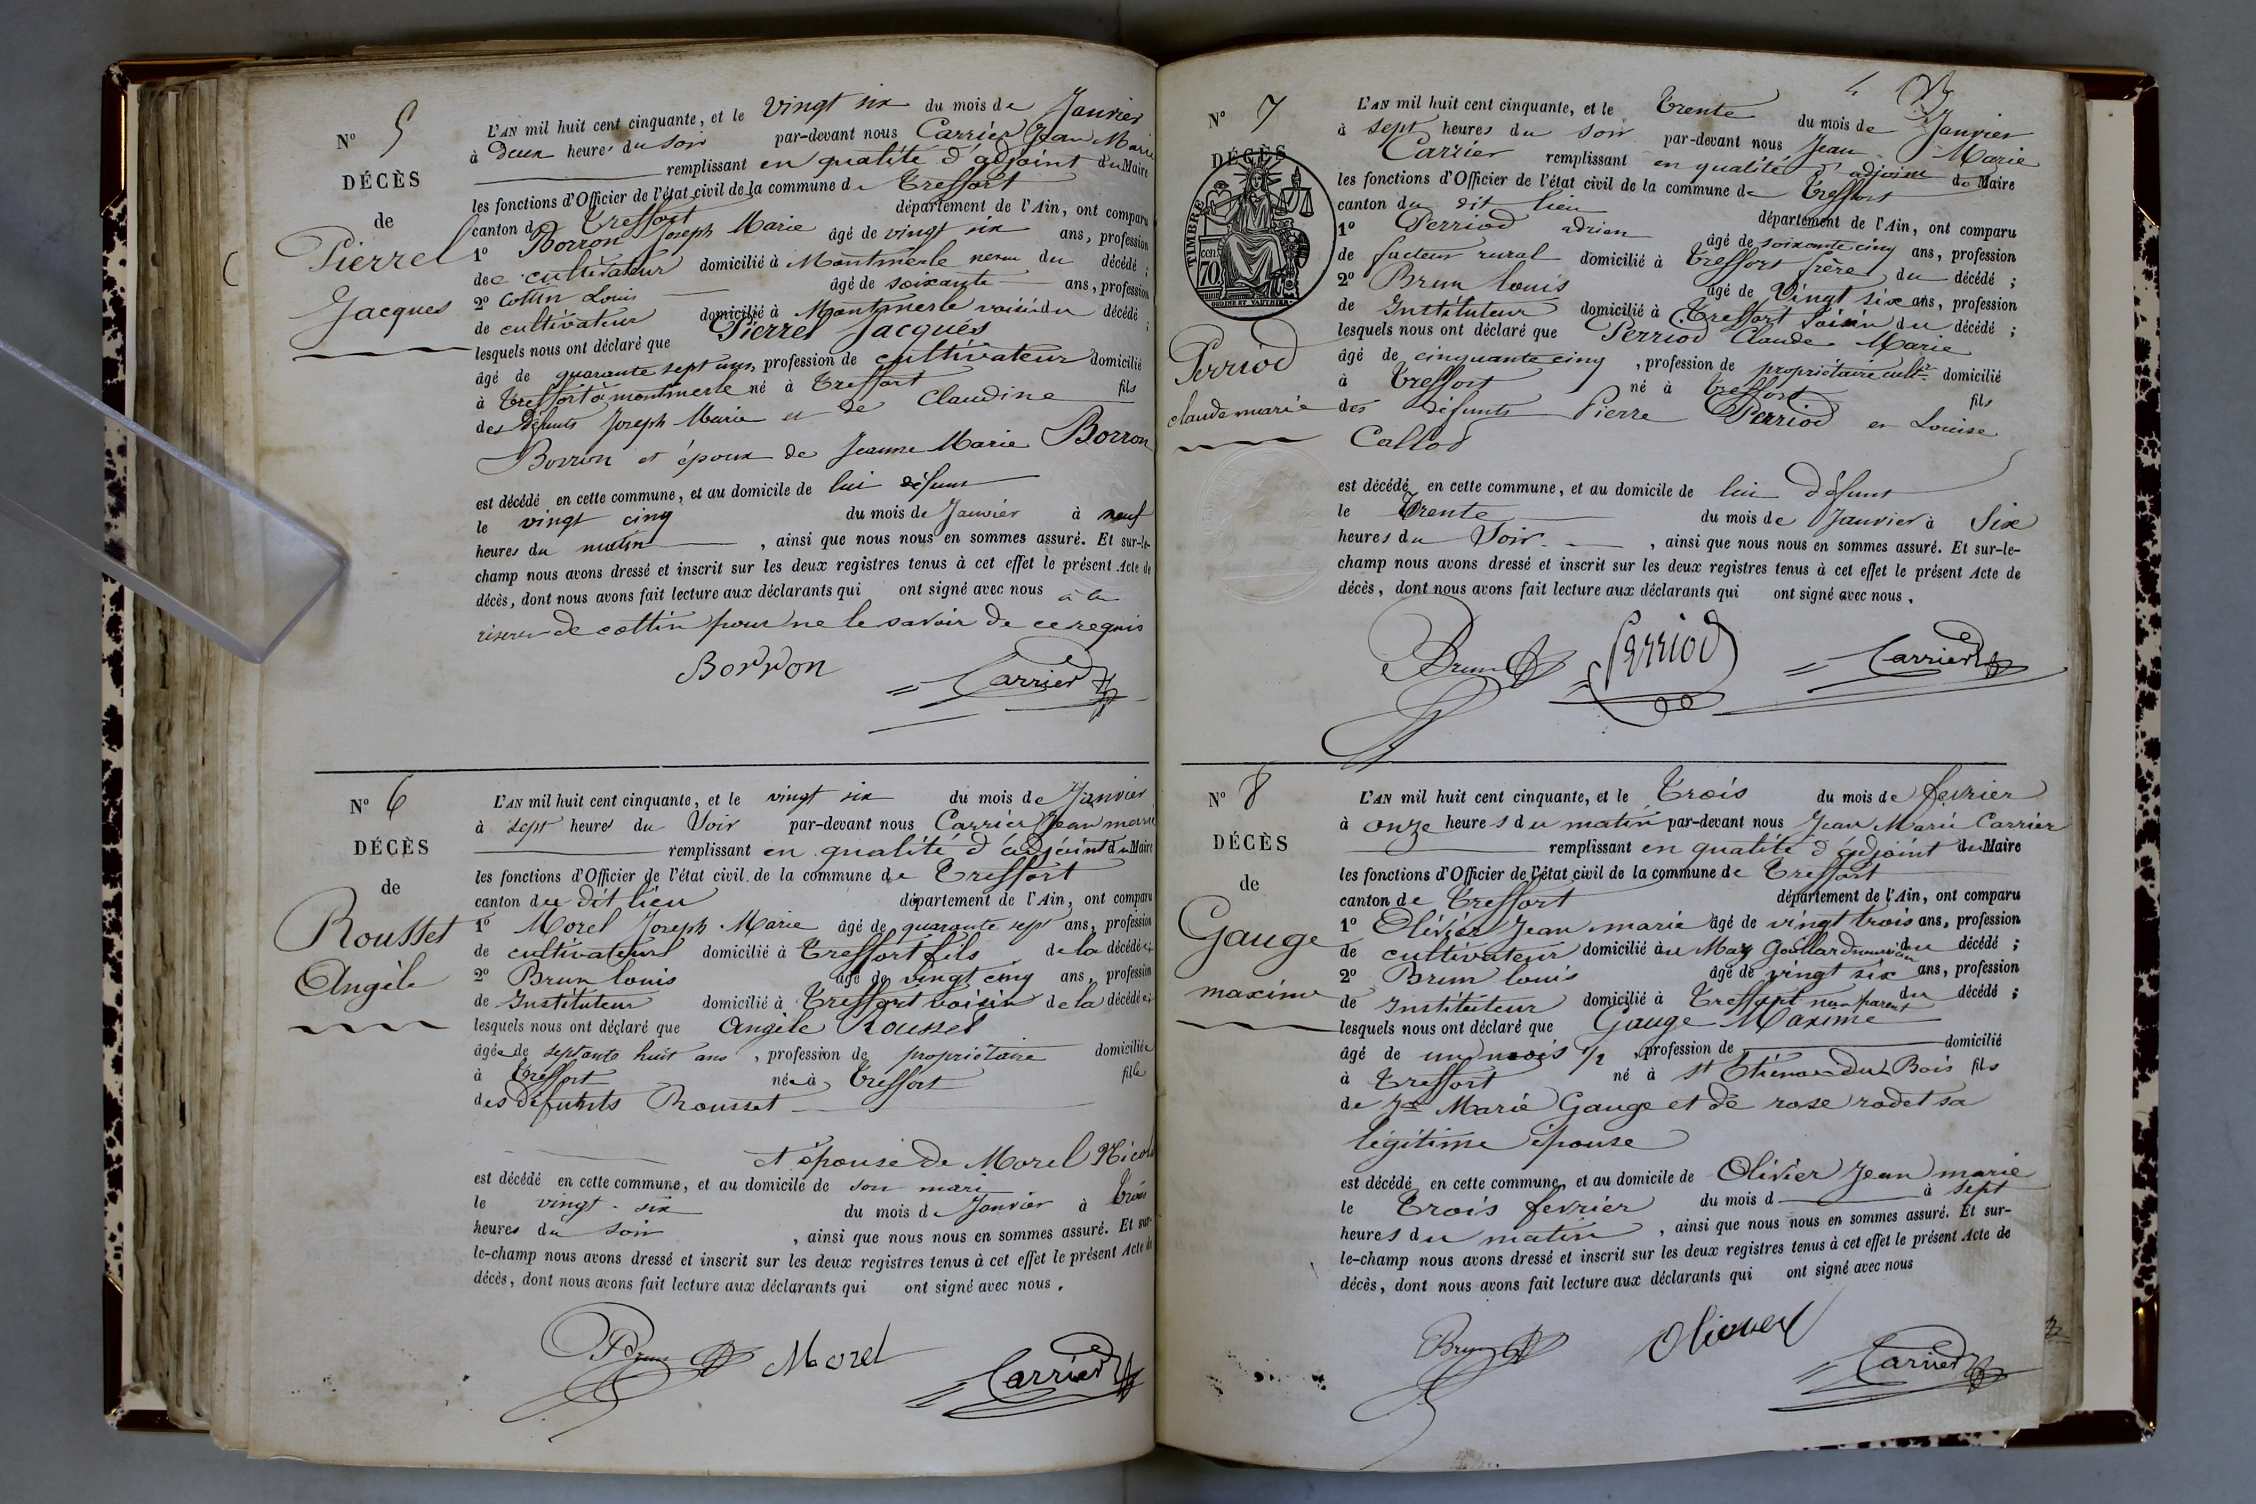 N° 5
DÉCÈS
de
Pierrel
Jacques
L'AN mil huit cent cinquante, et le vingt six du mois de Janvier
à Deux heures du soir par-devant nous Carrier Jean Marie
remplissant en qualité d'adjoint du Maire
les fonctions d'Officier de l'état civil de la commune de Treffort
canton d Treffort département de l'Ain, ont comparu
1° Borron Joseph Marie âgé de vingt six ans, profession
de cultivateur domicilié à Montmerle neveu du décédé ;
2° Cottin Louis âgé de soixante ans, profession
de cultivateur domicilié à Montmerle voisin du décédé ;
lesquels nous ont déclaré que Pierrel Jacques
âgé de quarante sept ans, profession de cultivateur domicilié
à Treffort à montmerle né à Treffort fils
des Défunts Joseph Marie et de Claudine
Borron et époux de Jeanne Marie Borron
est décédé en cette commune, et au domicile de lui défunt
le vingt cinq du mois de Janvier à neuf
heures du matin, ainsi que nous nous en sommes assuré. Et sur-le-
champ nous avons dressé et inscrit sur les deux registres tenus à cet effet le présent Acte de
décès, dont nous avons fait lecture aux déclarants qui ont signé avec nous à la
réserve de cottin pour ne le savoir de ce requis
Borron Carrier
N° 6
DÉCÈS
de
Rousset
Angèle
L'AN mil huit cent cinquante, et le vingt six du mois de Janvier
à sept heures du Soir par-devant nous Carrier Jean marie
remplissant en qualité d'adjoint du Maire
les fonctions d'Officier de l'état civil de la commune de Treffort
canton du dit lieu département de l'Ain, ont comparu
1° Morel Joseph Marie âgé de quarante sept ans, profession
de cultivateur domicilié à Treffort fils de la décédée ;
2° Brun louis âgé de vingt cinq ans, profession
de Instituteur domicilié à Treffort voisin de la décédée ;
lesquels nous ont déclaré que Angèle Rousset
âgée de septante huit ans, profession de propriétaire domiciliée
à Treffort née à Treffort fille
des défunts Rousset
et épouse de Morel Nicolas
est décédé en cette commune, et au domicile de son mari
le vingt six du mois de Janvier à trois
heures du soir, ainsi que nous nous en sommes assuré. Et sur-
le-champ nous avons dressé et inscrit sur les deux registres tenus à cet effet le présent Acte de
décès, dont nous avons fait lecture aux déclarants qui ont signé avec nous.
Brun Morel Carrier
4
N° 7
DÉCÈS
TIMBRE
70 cen.
Perriod
claude marie
L'AN mil huit cent cinquante, et le Trente du mois de Janvier
à sept heures du soir par-devant nous Jean Marie
Carrier remplissant en qualité d'adjoint de Maire
les fonctions d'Officier de l'état civil de la commune de Treffort
canton du dit lieu département de l'Ain, ont comparu
1° Perriod adrien âgé de soixante cinq ans, profession
de facteur rural domicilié à Treffort frère du décédé ;
2° Brun louis âgé de Vingt six ans, profession
de Instituteur domicilié à Treffort Voisin du décédé ;
lesquels nous ont déclaré que Perriod Claude Marie
âgé de cinquante cinq, profession de propriétaire cultr domicilié
à Treffort né à Treffort fils
des défunts Pierre Perriod et Louise
Callod
est décédé en cette commune, et au domicile de lui Défunt
le Trente du mois de Janvier à Six
heures du Soir, ainsi que nous nous en sommes assuré. Et sur-le-
champ nous avons dressé et inscrit sur les deux registres tenus à cet effet le présent Acte de
décès, dont nous avons fait lecture aux déclarants qui ont signé avec nous.
Brun Perriod Carrier
N° 8
DÉCÈS
de
Gauge
maxime
L'AN mil huit cent cinquante, et le Trois du mois de fevrier
à onze heures du matin par-devant nous Jean Marie Carrier
remplissant en qualité d'adjoint du Maire
les fonctions d'Officier de l'état civil de la commune de Treffort
canton de Treffort département de l'Ain, ont comparu
1° Olivier Jean marie âgé de vingt trois ans, profession
de cultivateur domicilié au du décédé ;
2° Brun louis âgé de vingt six ans, profession
de Instituteur domicilié à Treffort non parent du décédé ;
lesquels nous ont déclaré que Gauge Maxime
âgé de un mois 1/2, profession de domicilié
à Treffort né à St Etienne du Bois fils
de Marie Gauge et de rose rodet sa
légitime épouse
est décédé en cette commune, et au domicile de Olivier Jean marie
le Trois fevrier du mois d à sept
heures du matin, ainsi que nous nous en sommes assuré. Et sur-
le-champ nous avons dressé et inscrit sur les deux registres tenus à cet effet le présent Acte de
décès, dont nous avons fait lecture aux déclarants qui ont signé avec nous
Brun Olivier Carrier